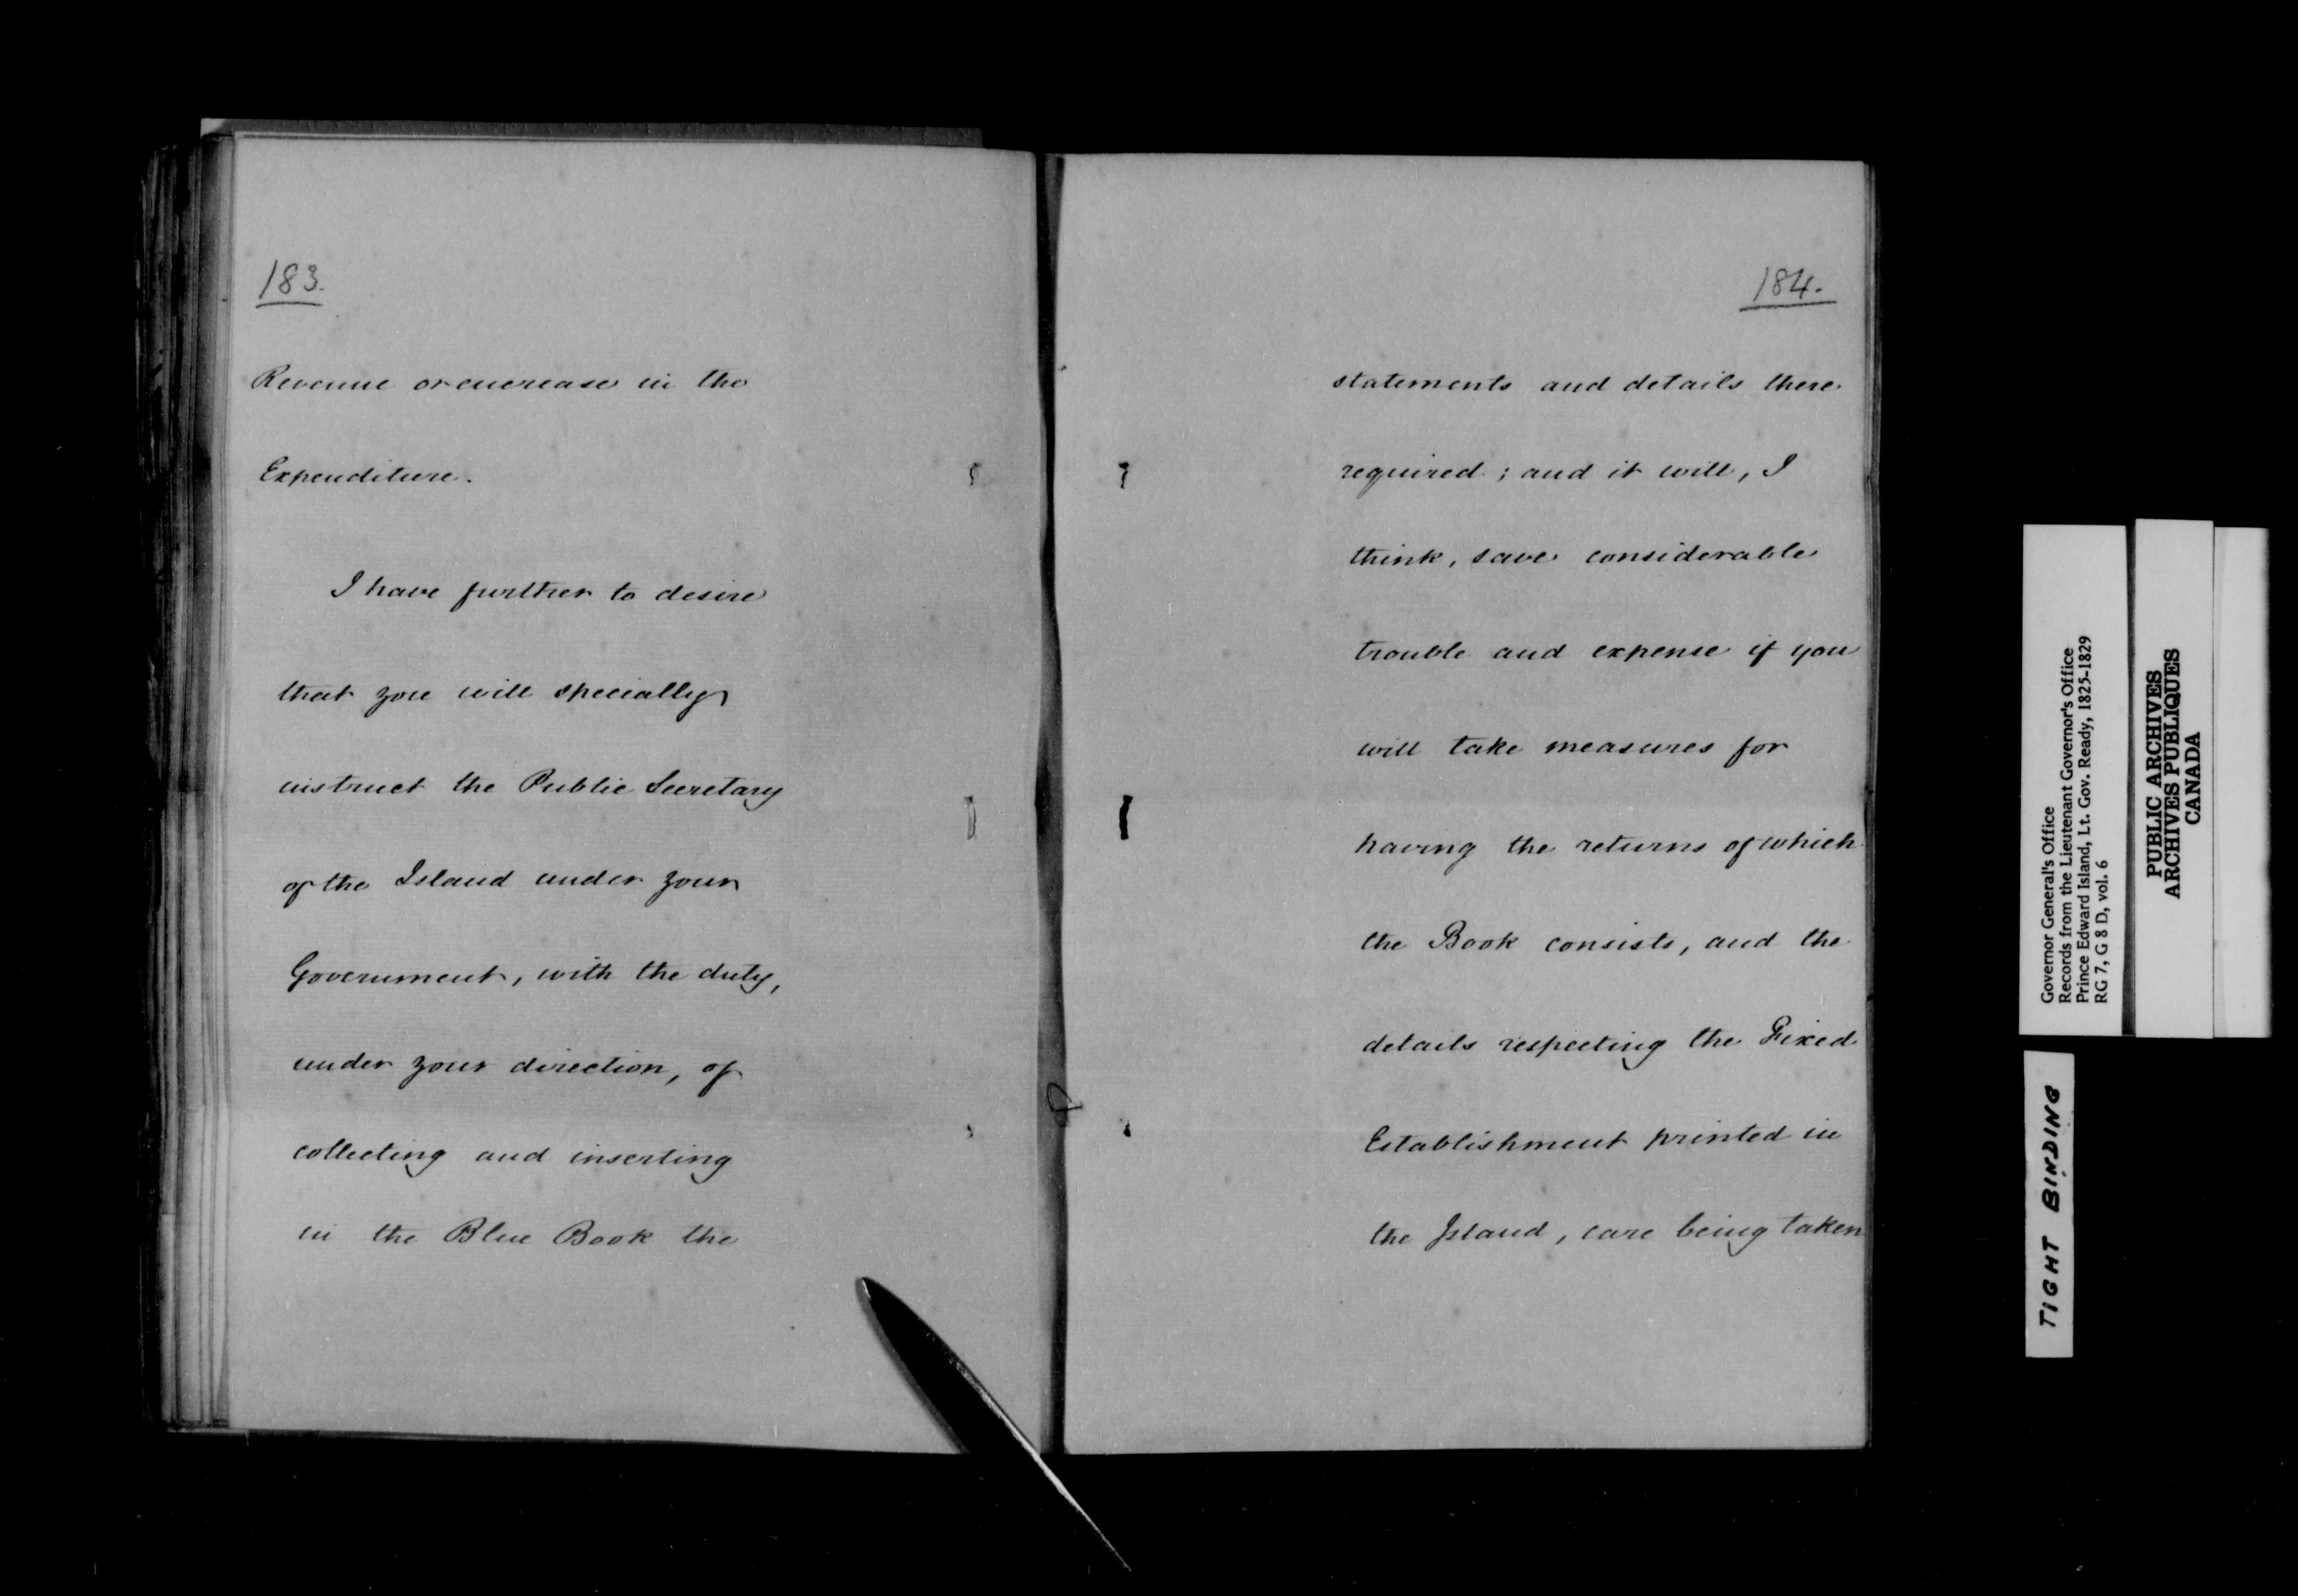 183.
Revenue or encrease in the
Expenditure.
I have further to desire
that you will specially
instruct the Public Secretary
of the Island under your
Government, with the duty,
under your direction, of
collecting and inserting
in the Blue Book the
184.
statements and details there
required; and it will, I
think, save considerable
trouble and expense if you
will take measures for
having the returns of which
the Book consists, and the
details respecting the Fixed
Establishment printed in
the Island, care being taken
Governor General's Office
Records from the Lieutenant Governor's Office
Prince Edward Island, Lt. Gov. Ready, 1825-1829
RG 7, G 8 D, vol. 6
PUBLIC ARCHIVES
ARCHIVES PUBLIQUES
CANADA
TIGHT BINDING